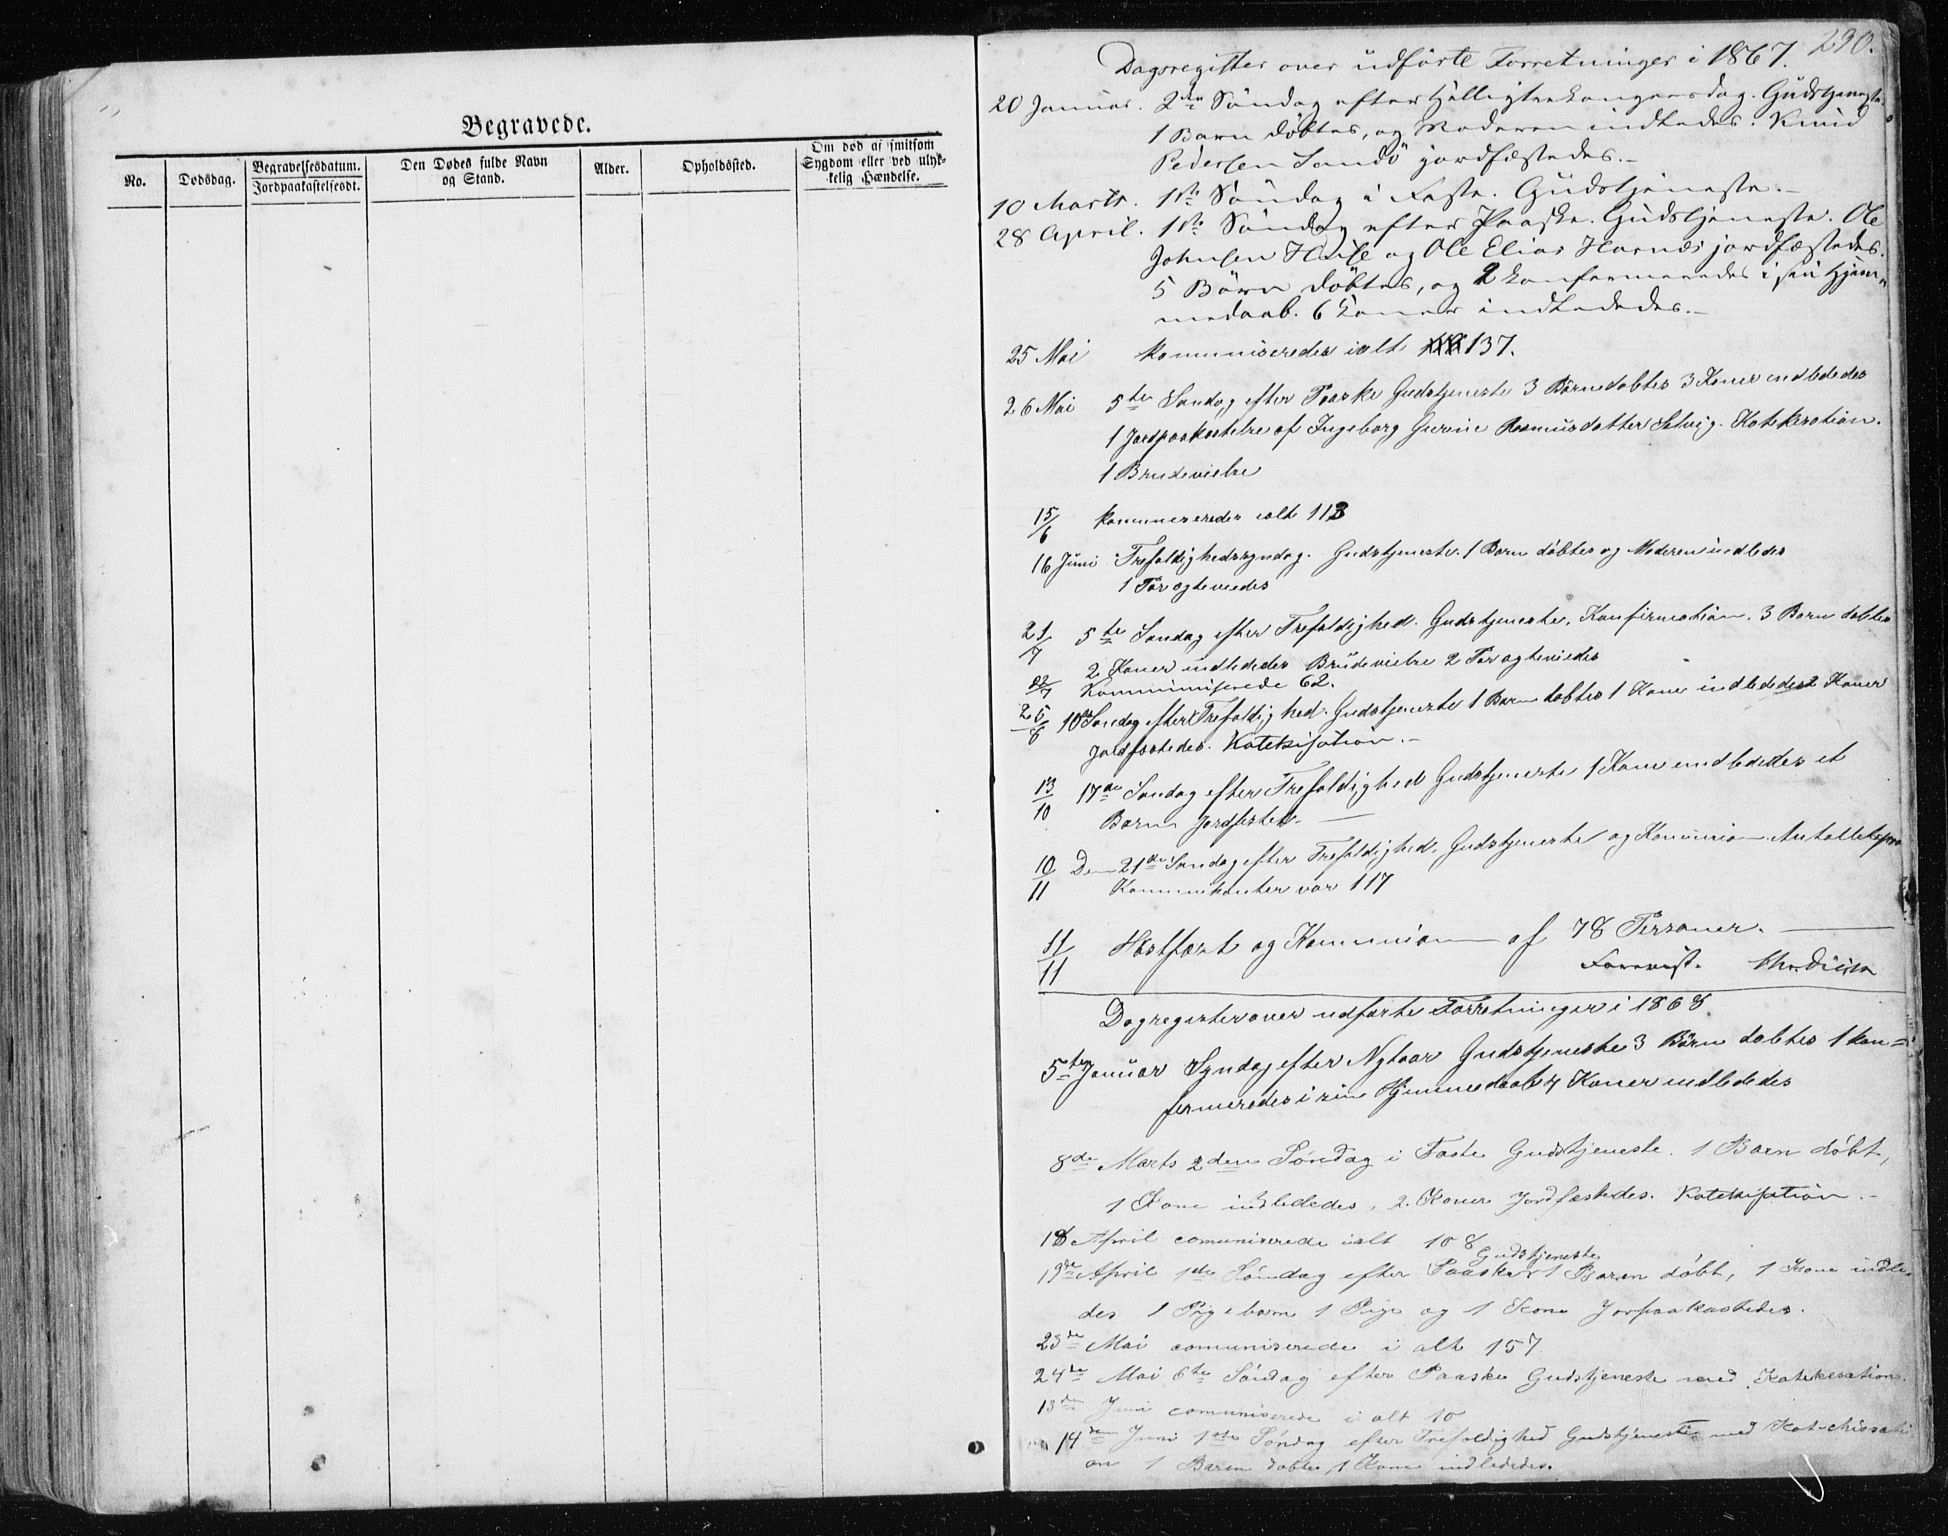 Begravede.
No.
Dødsdag.
Begravelsesdatum.
Jordpaakastelsesdt.
Den Dødes fulde Navn
og Stand.
Alder.
Opholdssted.
Om død af smitsom
Sygdom eller ved ulyk-
kelig Hændelse.
290.
Dagsregister over udførte Forretninger i 1867.
20 Januar. 2den Søndag efter Helligtrekongersdag. Gudstjeneste.
1 Barn døbtes, og Moderen indledes. Knud
Pedersen Sandö jordfæstedes.-
10 Marts. 1ste Søndag i Faste. Gudstjeneste.-
28 April. 1ste Søndag efter Paaske. Gudstjeneste. Ole
Johnsen og Ole Elias jordfæstedes.
5 Børn døbtes, og 2 konfirmeredes i sin Hjem-
medaab. 6 Koner indlededes.-
25 Mai kommuniceredes ialt 137.
26 Mai 5te Søndag efter Paaske Gudstjeneste 3 Børn døbtes 3 Koner indlededes
1 Jordpaakastelse af Ingeborg Rasmusdatter Selvig. Katekesation.
1 Brudevielse
15/6 kommuniseredes ialt 113
16 Juni Trefoldighedssyndag. Gudstjeneste. 1 Barn døbtes og Moderen indledes
1 Par ægteviedes
21/7 5te Søndag efter Trefoldighed. Gudstjeneste, Konfirmation. 3 Børn døbtes
2 Koner indlededes Brudevielse 2 Par ægteviedes
22/7 Kommuniserede 62.
25/8 10de Søndag efter Trefoldighed. Gudstjeneste 1 Barn døbtes 1 Kone indlededes 2 Koner
Jordfæstedes. Katekisation.-
13/10 17de Søndag efter Trefoldighed Gudstjeneste 1 Kone indlededes et
Barn Jordfæstet.-
10/11 Den 21de Søndag efter Trefoldighed. Gudstjeneste og Kommunion Antallet paa
Kommunikanter var 117
11/11 Høstfært og Kommunion af 78 Personer.
Forevist.
Dagregister over udførte Forretninger i 1868.
5te Januar Syndag efter Nytaar Gudstjeneste 3 Børn døbtes 1 kon=
firmeredes i sin Hjemmedaab 4 Koner indlededes
8de Marts 2den Søndag i Faste Gudstjeneste. 1 Barn døbt,
1 Kone indlededes, 2 Koner Jordfæstedes. Katekisation.-
18 April comuniserede ialt 108
Gudstjeneste
19de April 1ste Søndag efter Paaske 1 Barn døbt, 1 Kone indle-
des 1 Pigebarn 1 Pige og 1 Kone Jorpaakastedes.
23de Mai comuniserede i alt 157
24de Mai 6te Søndag efter Paaske Gudstjeneste med Katekesation.
13den Juni comuniserede i alt 10
14den Juni 1ste Søndag efter Trefoldighed Gudstjeneste med Katechissati
on 1 Barn døbtes, 1 Kone indlededes.